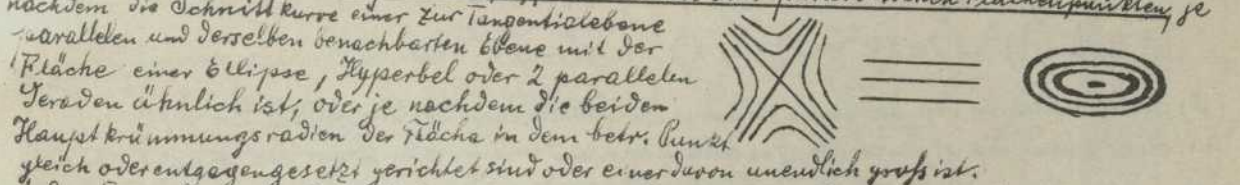 nachdem die Schnittkurve einer zur Tangentialebene je
parallelen und derselben benachbarten Ebene mit der
Fläche einer Ellipse, Hyperbel oder 2 parallelen
Geraden ähnlich ist, oder je nachdem die beiden
Hauptkrümmungsradien der Fläche in dem betr. Punkt
gleich oder entgegengesetzt gerichtet sind oder einer davon unendlich groß ist.